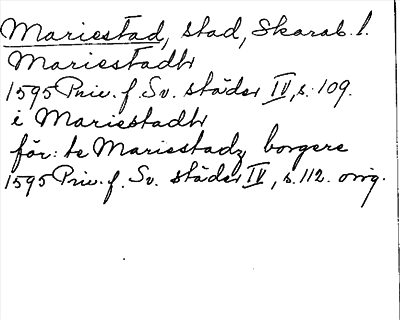 Mariestad, stad, Skarab. l.
Mariestadh
1595 Priv. f. Sv. städer IV, s. 109.
i Mariestadh
för: te Mariestadz borgere
1595 Priv. f. Sv. städer IV, s. 112. orig.